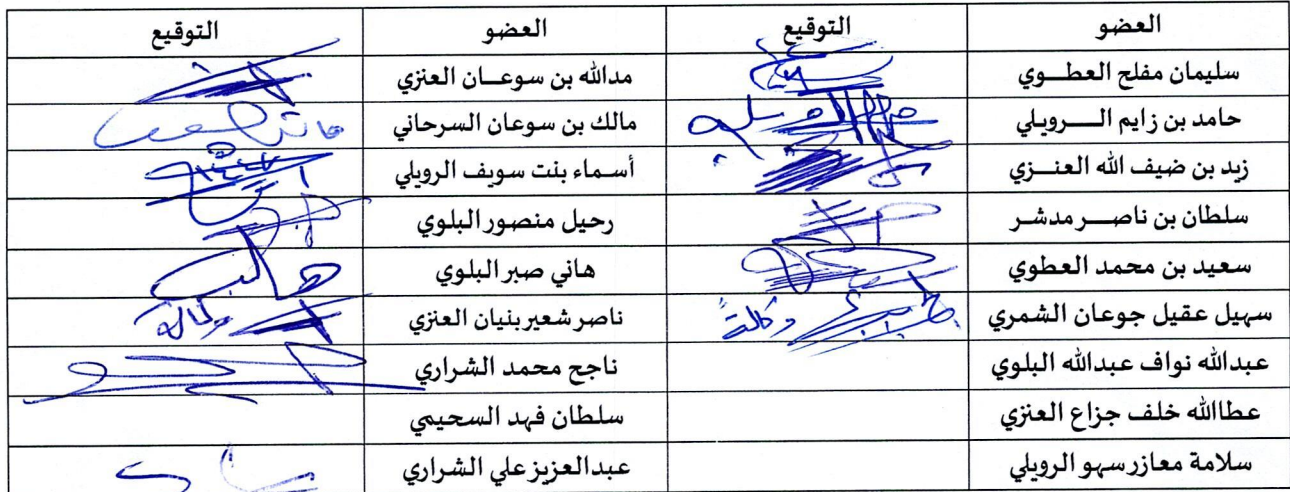 العضو التوقيع العضو التوقيع
سليمان مفلح العطــوي مدالله بن سوعــان العنزي
حامد بن زايم الــــرويلي مالك بن سوعان السرحاني
زيد بن ضيف الله العنــزي أسـماء بنت سويف الرويلي
سلطان بن ناصــر مدشـر رحيل منصور البلوي
سعيد بن محمد العطوي هاني صبر البلوي
سهيل عقيل جوعان الشمري وكالة ناصر شعير بنيان العنزي وكالة
عبدالله نواف عبدالله البلوي ناجح محمد الشراري
عطاالله خلف جزاع العنزي سلطان فهد السحيمي
سلامة معازر سهو الرويلي عبدالعزيز علي الشراري